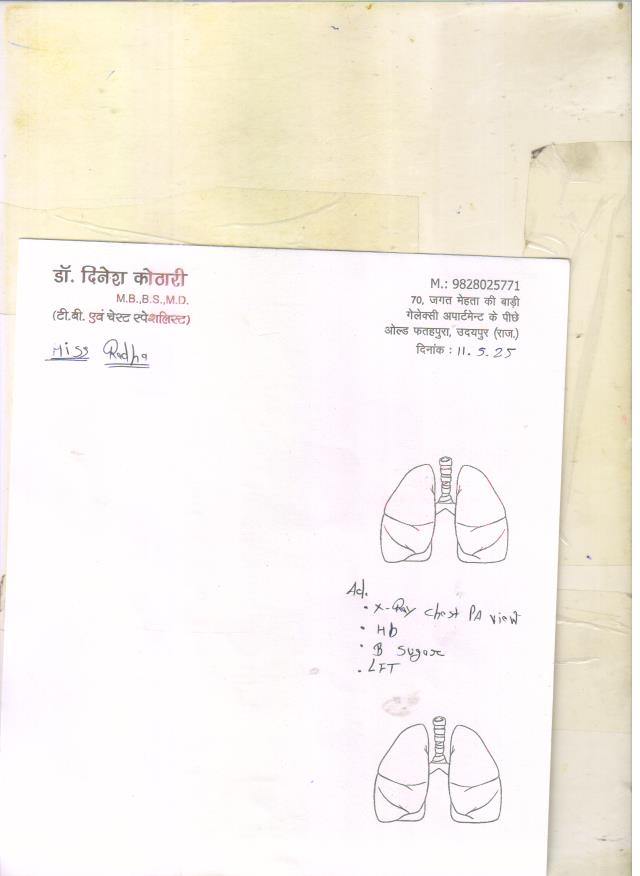 डॉ. दिनेश कोठारी
M.B.,B.S.,M.D.
(टी.बी. एवं चेस्ट स्पेशलिस्ट)
Miss Radha
M.: 9828025771
70, जगत मेहता की बाड़ी
गेलेक्सी अपार्टमेन्ट के पीछे
ओल्ड फतहपुरा, उदयपुर (राज.)
दिनांक : 11.5.25
Ad.
• X-Ray chest PA view
• Hb
• B Sugar
• LFT